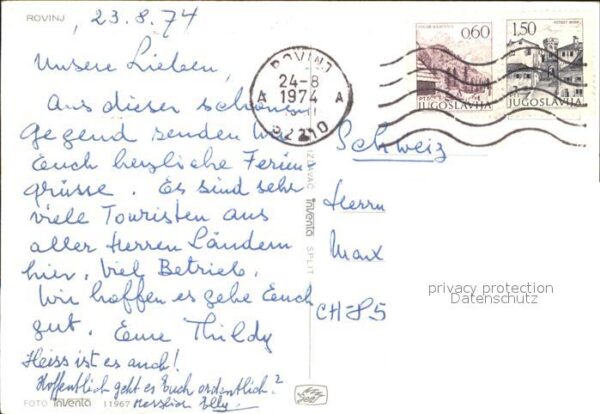 ROVINJ
23.8.74
Unsere Lieben,
Aus dieser schönen
Gegend senden wir
Euch herzliche Ferien
grüsse. Es sind sehr
viele Touristen aus
aller Herren Ländern
hier. Viel Betrieb.
Wir hoffen es gehe Euch
gut. Eure Thildy
Heiss ist es auch!
Hoffentlich geht es Euch ordentlich?
Herzlich Elly.
FOTO inventa 11967
IZDAVAČ inventa SPLIT
ROVINJ
24-8
1974
A A
52210
0,60
PTT JUGOSLAVIJA
1,50
JUGOSLAVIJA
Schweiz
Herrn
Marx
CH-85
privacy protection
Datenschutz